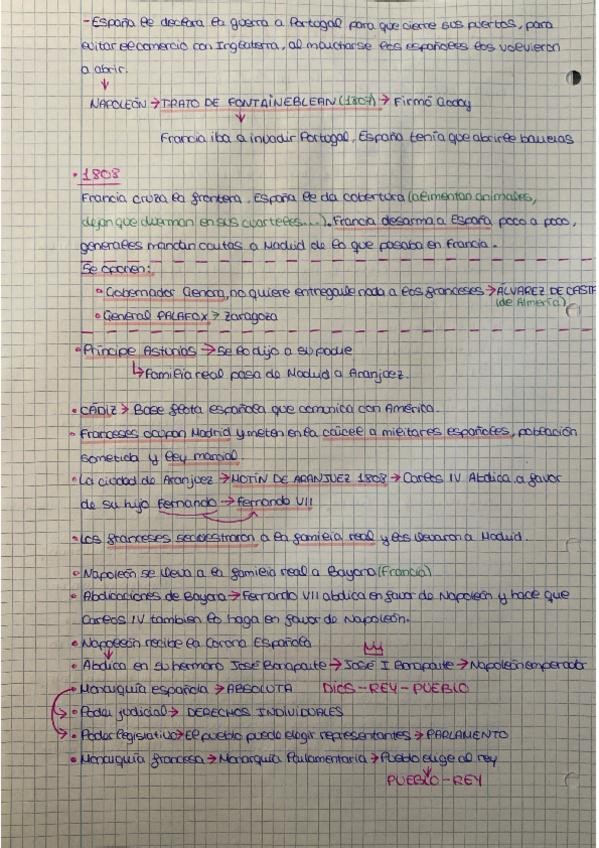 - España le declara la guerra a Portugal para que cierre sus puertos, para
evitar el comercio con Inglaterra, al marcharse los españoles los volvieron
a abrir.
NAPOLEÓN → TRATO DE FONTAINEBLEAN (1807) → Firmó Godoy
Francia iba a invadir Portugal, España tenía que abrirle barreras
• 1808
Francia cruza la frontera, España le da cobertura (alimentan animales,
dejan que duerman en sus cuarteles...). Francia desarma a España poco a poco,
generales mandan cartas a Madrid de lo que pasaba en Francia.
Se oponen:
• Gobernador Gerona, no quiere entregarle nada a los franceses → ÁLVAREZ DE CASTR
(de Almería)
• General PALAFOX > Zaragoza
• Príncipe Asturias → Se lo dijo a su padre
↳ Familia real pasa de Madrid a Aranjuez.
• CÁDIZ > Base flota española que comunica con América.
• Franceses ocupan Madrid y meten en la cárcel a militares españoles, población
sometida y ley marcial.
• La ciudad de Aranjuez → MOTÍN DE ARANJUEZ 1808 → Carlos IV Abdica a favor
de su hijo Fernando → Fernando VII
• Los franceses secuestraron a la familia real y los llevaron a Madrid.
• Napoleón se lleva a la familia real a Bayona (Francia)
• Abdicaciones de Bayona → Fernando VII abdica en favor de Napoleón y hace que
Carlos IV tambien lo haga en favor de Napoleón.
• Napoleón recibe la Corona Española
• Abdica en su hermano José Bonaparte → José I Bonaparte → Napoleón emperador
• Monarquía española → ABSOLUTA DIOS - REY - PUEBLO
• Poder judicial → DERECHOS INDIVIDUALES
• Poder legislativo → El pueblo puede elegir representantes → PARLAMENTO
• Monarquía francesa → Monarquía Parlamentaria → Pueblo elige al rey
PUEBLO - REY